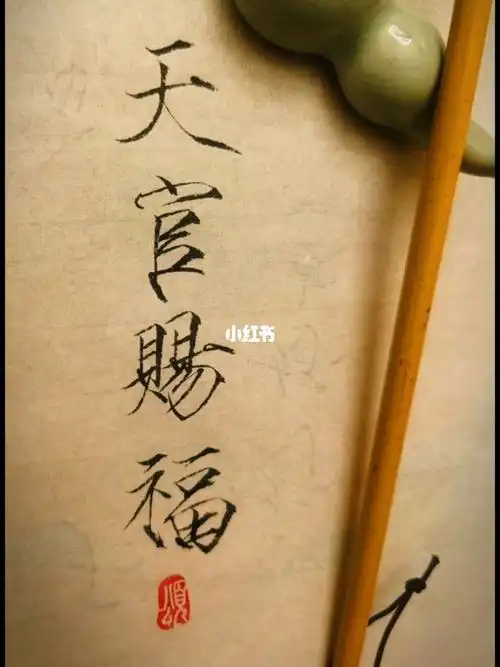 天官賜福
小红书